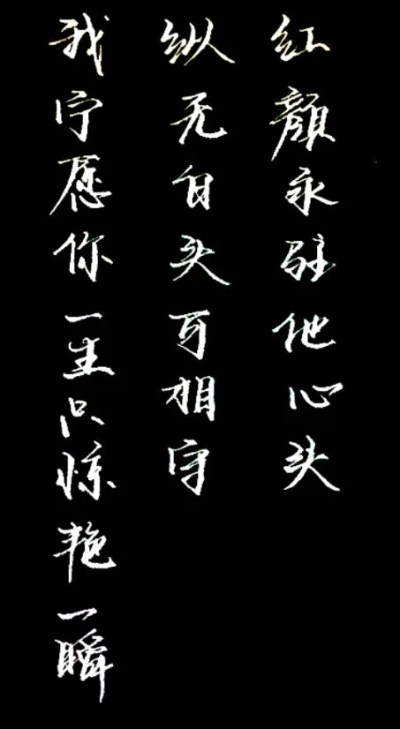 红颜永驻他心头
纵无白头可相守
我宁愿你一生只惊艳一瞬